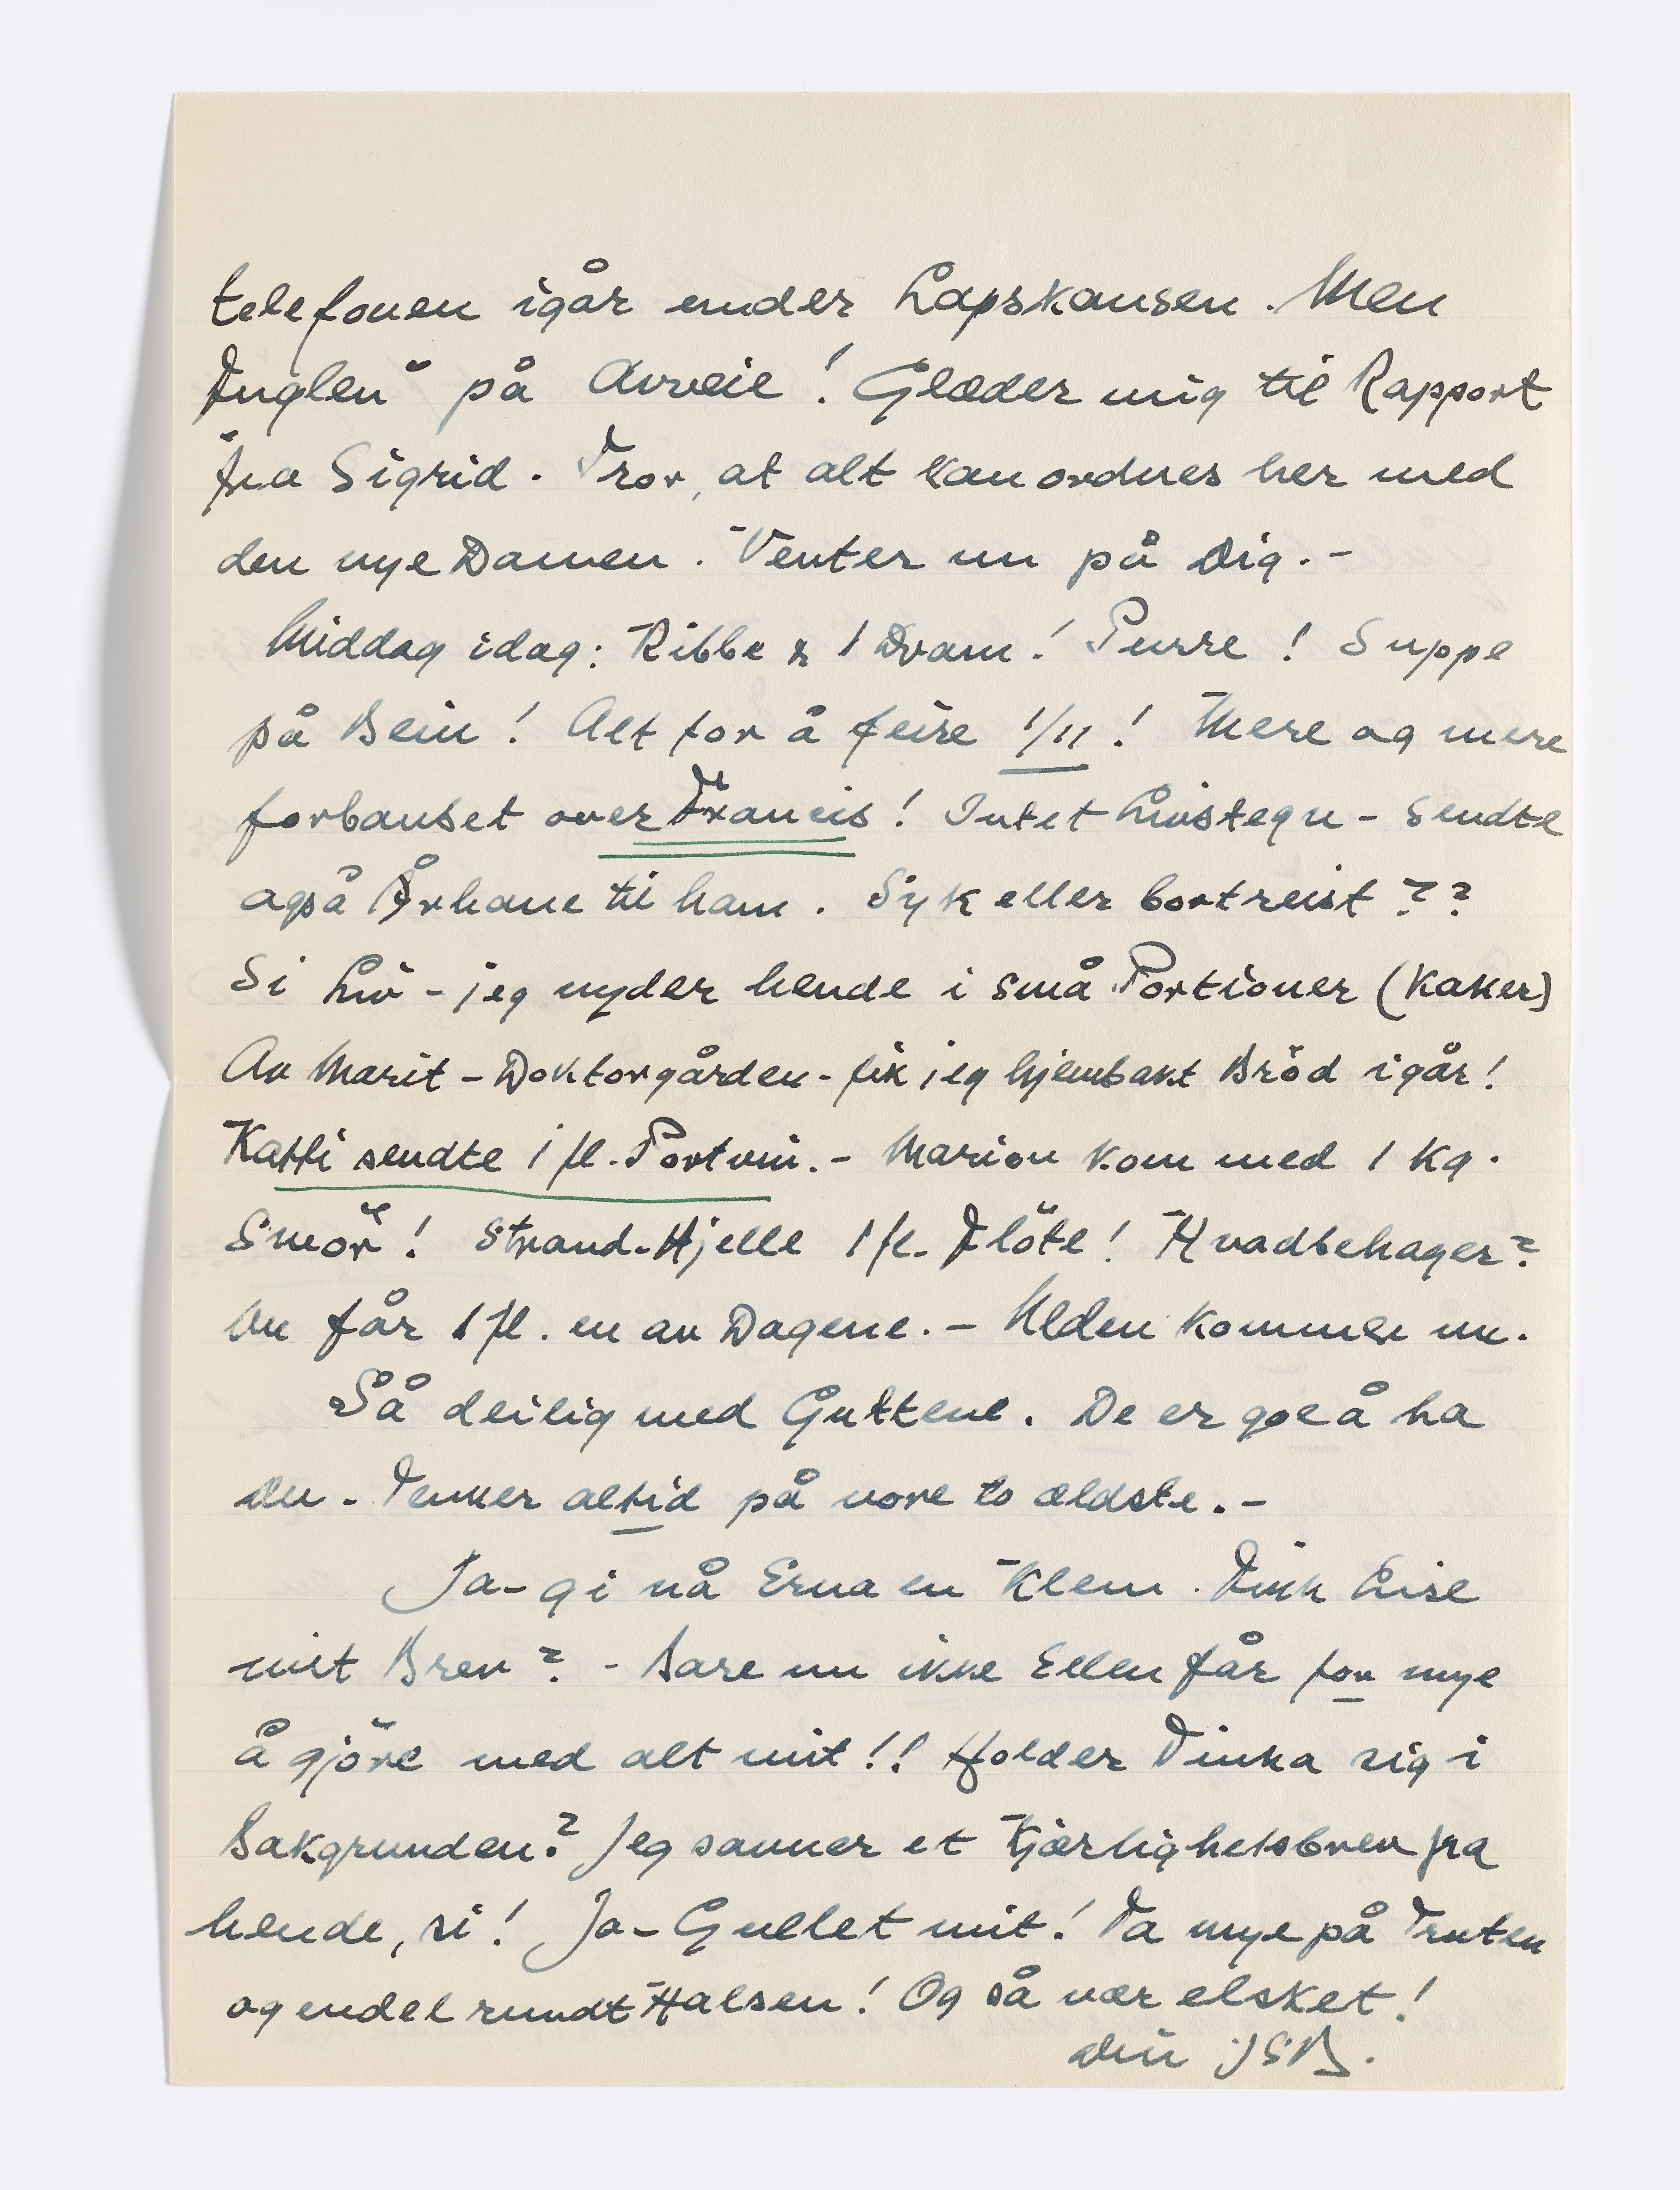 telefonen igår under Lapskausen. Men
Fuglen på Avveie! Glæder mig til Rapport
fra Sigrid. Tror, at alt kan ordnes her med
den nye Damen. Venter nu på Dig.-
Middag idag: Ribbe & 1 Dram! Purre! Suppe
på Bein! Alt for å feire 1/11! Mere og mere
forbauset over Francis! Intet Livstegn - Sendte
også Århane til ham. Syk eller bortreist??
Si Liv - jeg nyder hende i små Portioner (Kaker)
Av Marit - Doktorgården - fik jeg hjembakt Bröd igår!
Katti sendte 1 fl. Portvin.- Marion kom med 1 Kg.
Smör! Strand-Hjelle 1 fl. Flöte! Hvadbehager?
Du får 1 fl. en av Dagene.- Ulden kommer nu.
Så deilig med Guttene. De er goe å ha
du. Tenker altid på vore to ældste.-
Ja- gi nå Erna en Klem. Fikk Lise
mit Brev? - Bare nu ikke Ellen får for mye
å gjöre med alt mit!! Holder Tinka sig i
Bakgrunden? Jeg savner et Kjærlighetsbrev fra
hende, si! Ja- Gullet mit! Ta mye på Truten
og endel rundt Halsen! Og så vær elsket!
Din